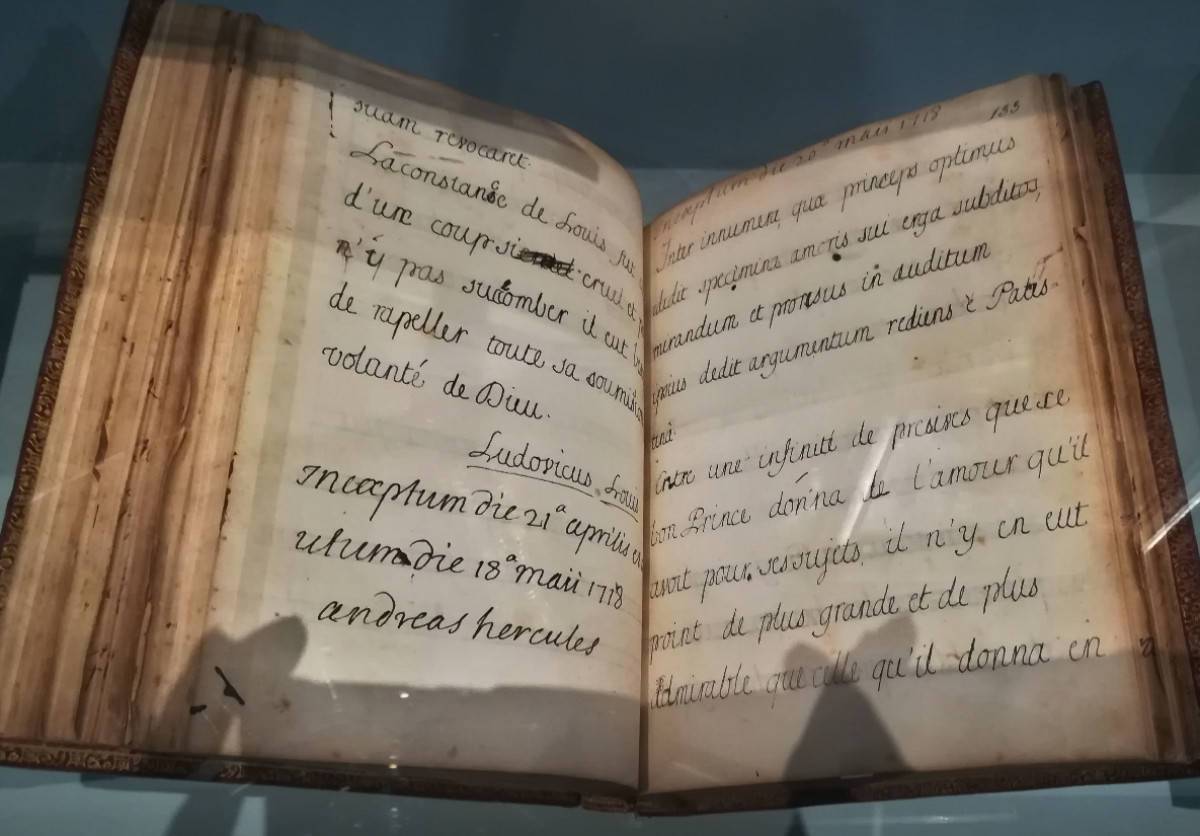 suam revocaret.
La constance de Louis fut
d'un coup si cruel et
n'y pas succomber il eut
de rapeller toute sa soumis
volanté de Dieu.
Ludovicus. Louis
Inceptum die 21ª aprilis
die 18ª maii 1718
andreas hercules
inceptum die 20ª maii 1718 133
Inter innumera quæ princeps optimus
edidit specimina amoris sui erga subditos,
mirandum et prorsus in auditum
ipsius dedit argumentum rediens è Patis-
tina
Entre une infinité de que ce
bon Prince donna de l'amour qu'il
avoit pour ses sujets, il n'y en eut
point de plus grande et de plus
admirable que celle qu'il donna en